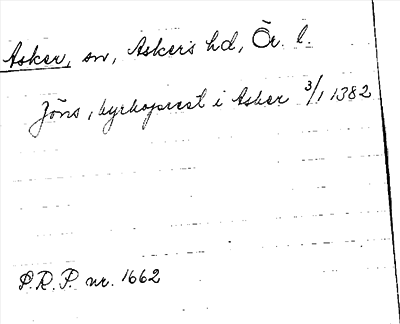 Asker, sn, Askers hd, Ör. l.
Jöns, kyrkoprest i Asker 3/1 1382
P.R.P. nr. 1662